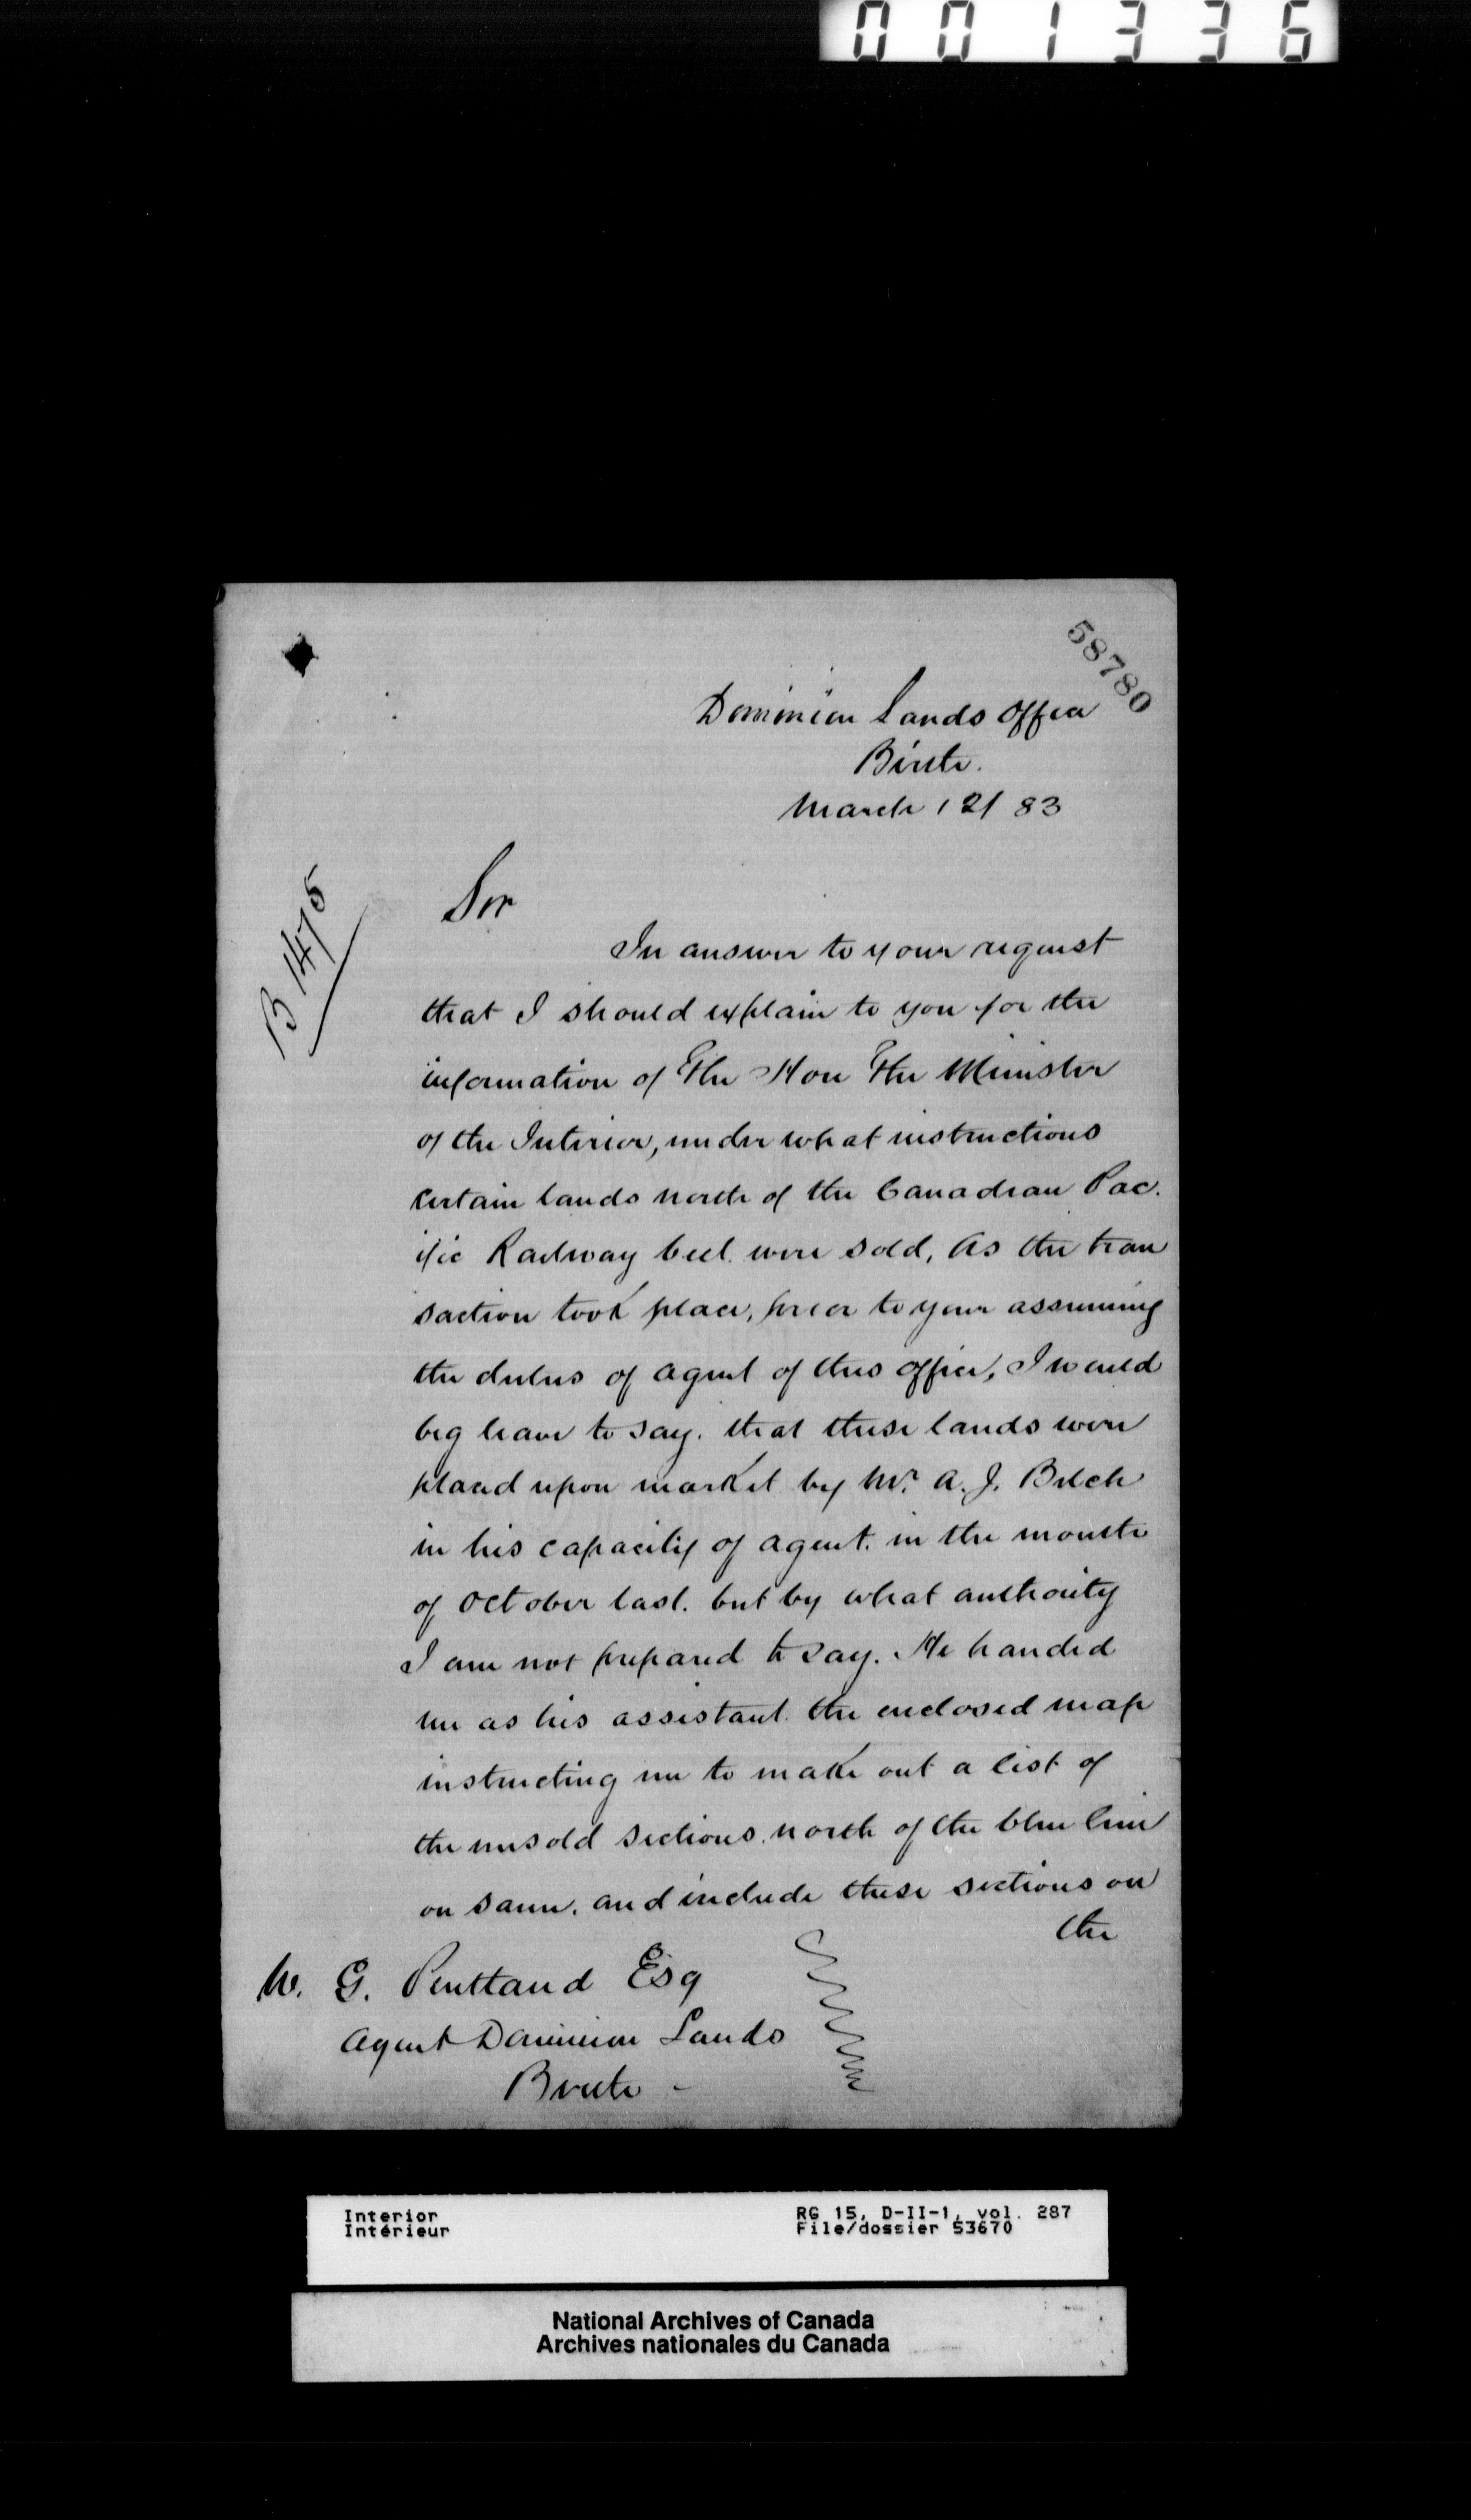 001336
58780
Dominion Lands Office
Birtle.
March 12/83
B 1475
Sir
In answer to your request
that I should explain to you for the
information of The Hon The Minister
of the Interior, under what instructions
certain lands north of the Canadian Pac.
ific Railway belt were sold, As the tran
saction took place, prior to your assuming
the duties of agent of this office, I would
beg leave to say. that these lands were
placed upon market by Mr. A. J. Belch
in his capacity of agent. in the month
of October last. but by what authority
I am not prepared to say. He handed
me as his assistant the enclosed map
instructing me to make out a list of
the unsold sections north of the blue line
on same. and include these sections on
the
W. G. Pentland Esq
Agent Dominion Lands
Birtle -
Interior
Intérieur
RG 15, D-II-1, vol. 287
File/dossier 53670
National Archives of Canada
Archives nationales du Canada